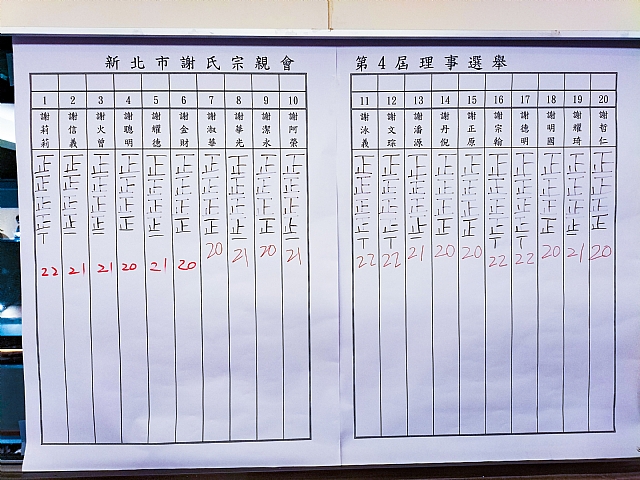 新北市謝氏宗親會 第4屆理事選舉
1 2 3 4 5 6 7 8 9 10 11 12 13 14 15 16 17 18 19 20
謝莉莉 謝信義 謝火曾 謝聰明 謝耀德 謝金財 謝淑華 謝華光 謝潔永 謝阿榮 謝泳義 謝文琮 謝潘源 謝丹悅 謝正原 謝宗翰 謝德明 謝明國 謝耀琦 謝哲仁
正正正正丅 正正正正一 正正正正一 正正正正 正正正正一 正正正正 正正正正 正正正正一 正正正正 正正正正一 正正正正丅 正正正正丅 正正正正一 正正正正 正正正正 正正正正丅 正正正正丅 正正正正 正正正正一 正正正正
22 21 21 20 21 20 20 21 20 21 22 22 21 20 20 22 22 20 21 20